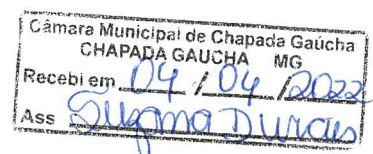 Câmara Municipal de Chapada Gaúcha
CHAPADA GAUCHA MG
Recebi em 04 / 04 / 2022
Ass Suzana Duraes